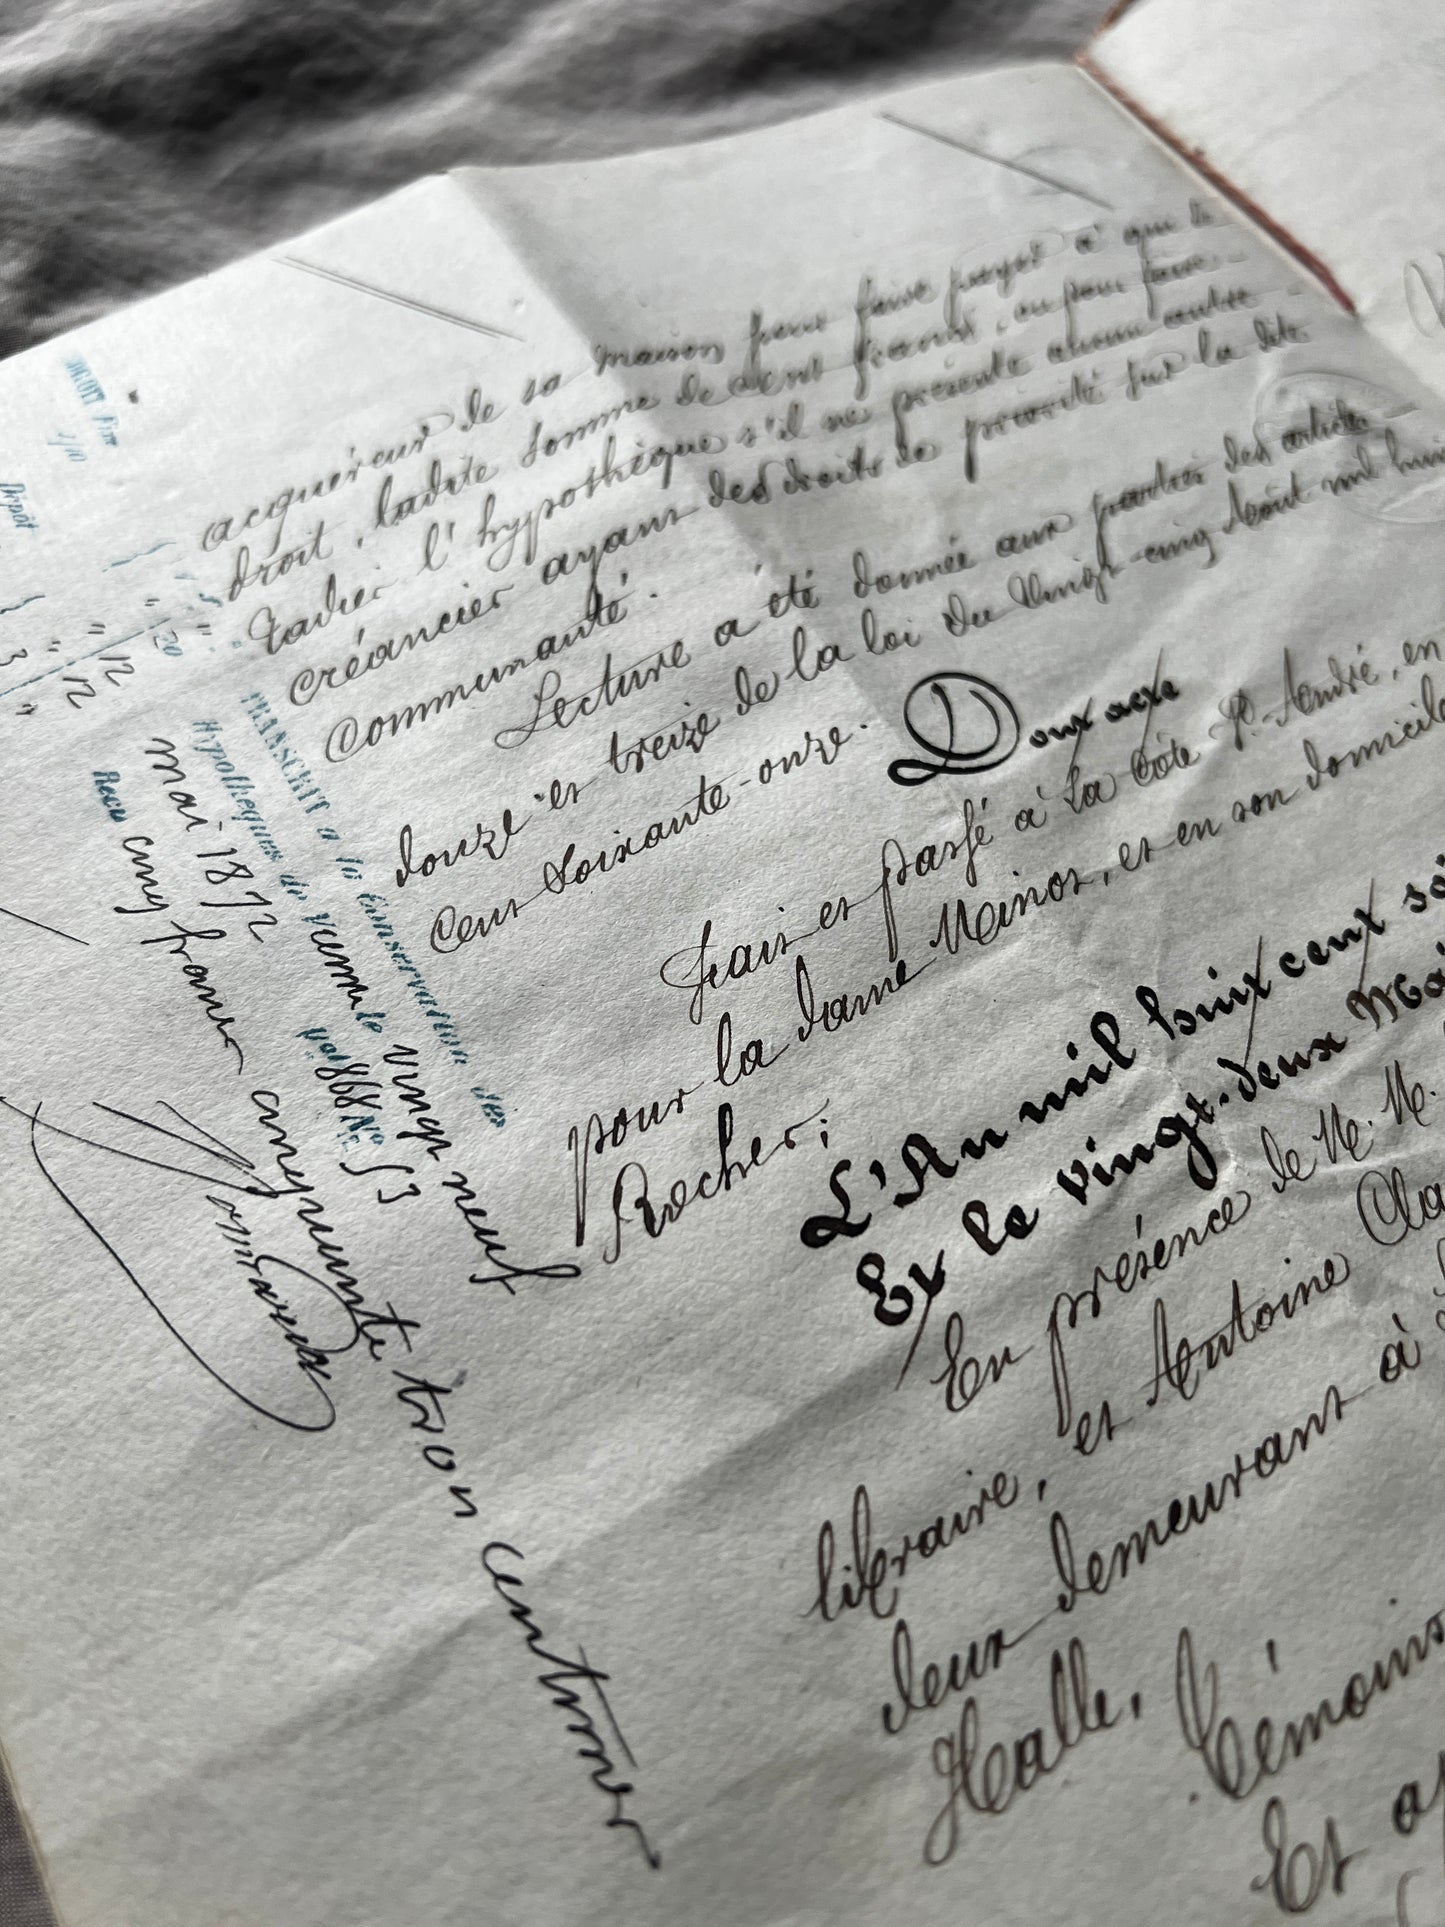 acquéreur de sa maison pour faire payer à qui de
droit, ladite somme de cent francs, ou pour faire
radier l'hypothèque s'il ne présente aucun autre
créancier ayant des droits de priorité sur la dite
communauté.
Lecture a été donnée aux parties des articles
douze et treize de la loi du vingt-cinq Août mil huit
cent soixante-onze.
Dont acte
Fait et passé à la Côte St. André, en
pour la dame Meinot, et en son domicile
Rocher;
L'An mil huit cent soi
Et le vingt-deux Mai
En présence de M. M.
libraire, et Antoine Cla
deux demeurant à
Halle, Témoins
Et
TRANSCRIT à la Conservation des
Hypothèques de Vienne le vingt neuf
mai 1872 Vol 868 N° 53
Reçu cinq francs cinquante trois centimes
Dépôt
120
12
12
3